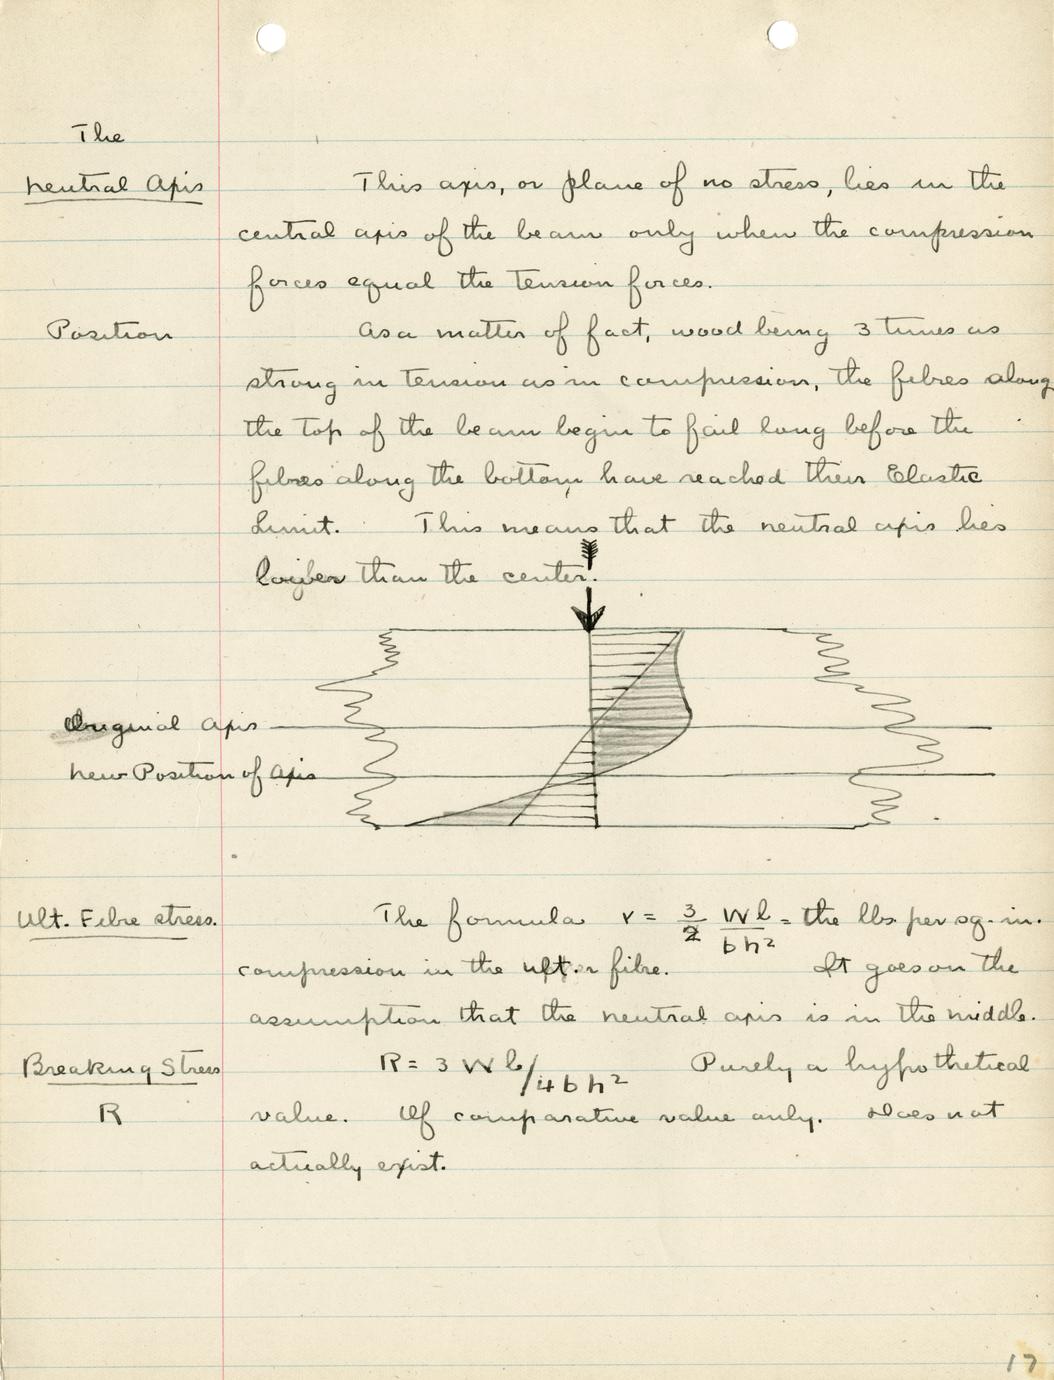 The
Neutral Axis
This axis, or plane of no stress, lies in the
central axis of the beam only when the compression
forces equal the tension forces.
Position
As a matter of fact, wood being 3 times as
strong in tension as in compression, the fibres along
the top of the beam begin to fail long before the
fibres along the bottom have reached their Elastic
Limit. This means that the neutral axis lies
lower than the center.
Original Axis
New Position of Axis
Ult. Fibre stress.
The formula r = 3/2 Wl/bh² = the lbs per sq. in.
compression in the fibre. It goes on the
assumption that the neutral axis is in the middle.
Breaking Stress
R
R = 3 W l/4bh² Purely a hypothetical
value. Of comparative value only. Does not
actually exist.
17